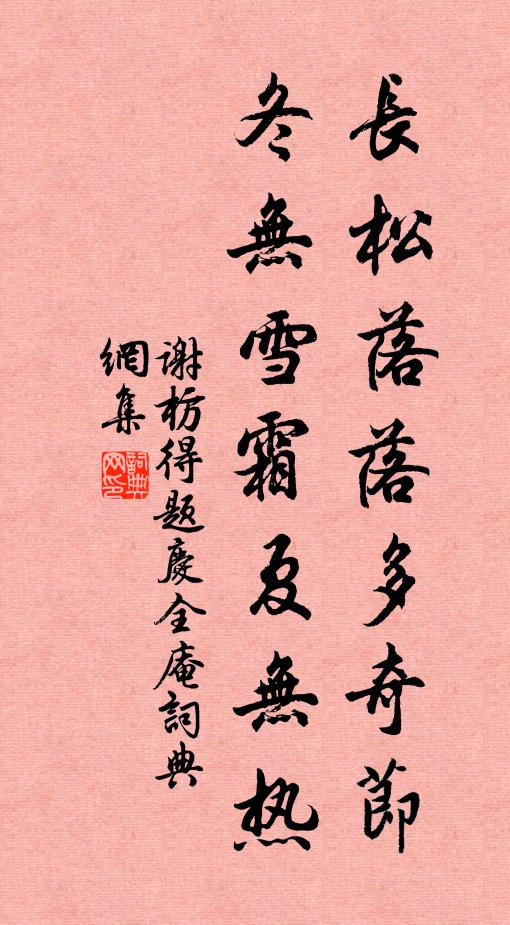 長松落落多奇節
冬無雪霜夏無热
谢枋得題慶全庵詞典
網集
詞典网印